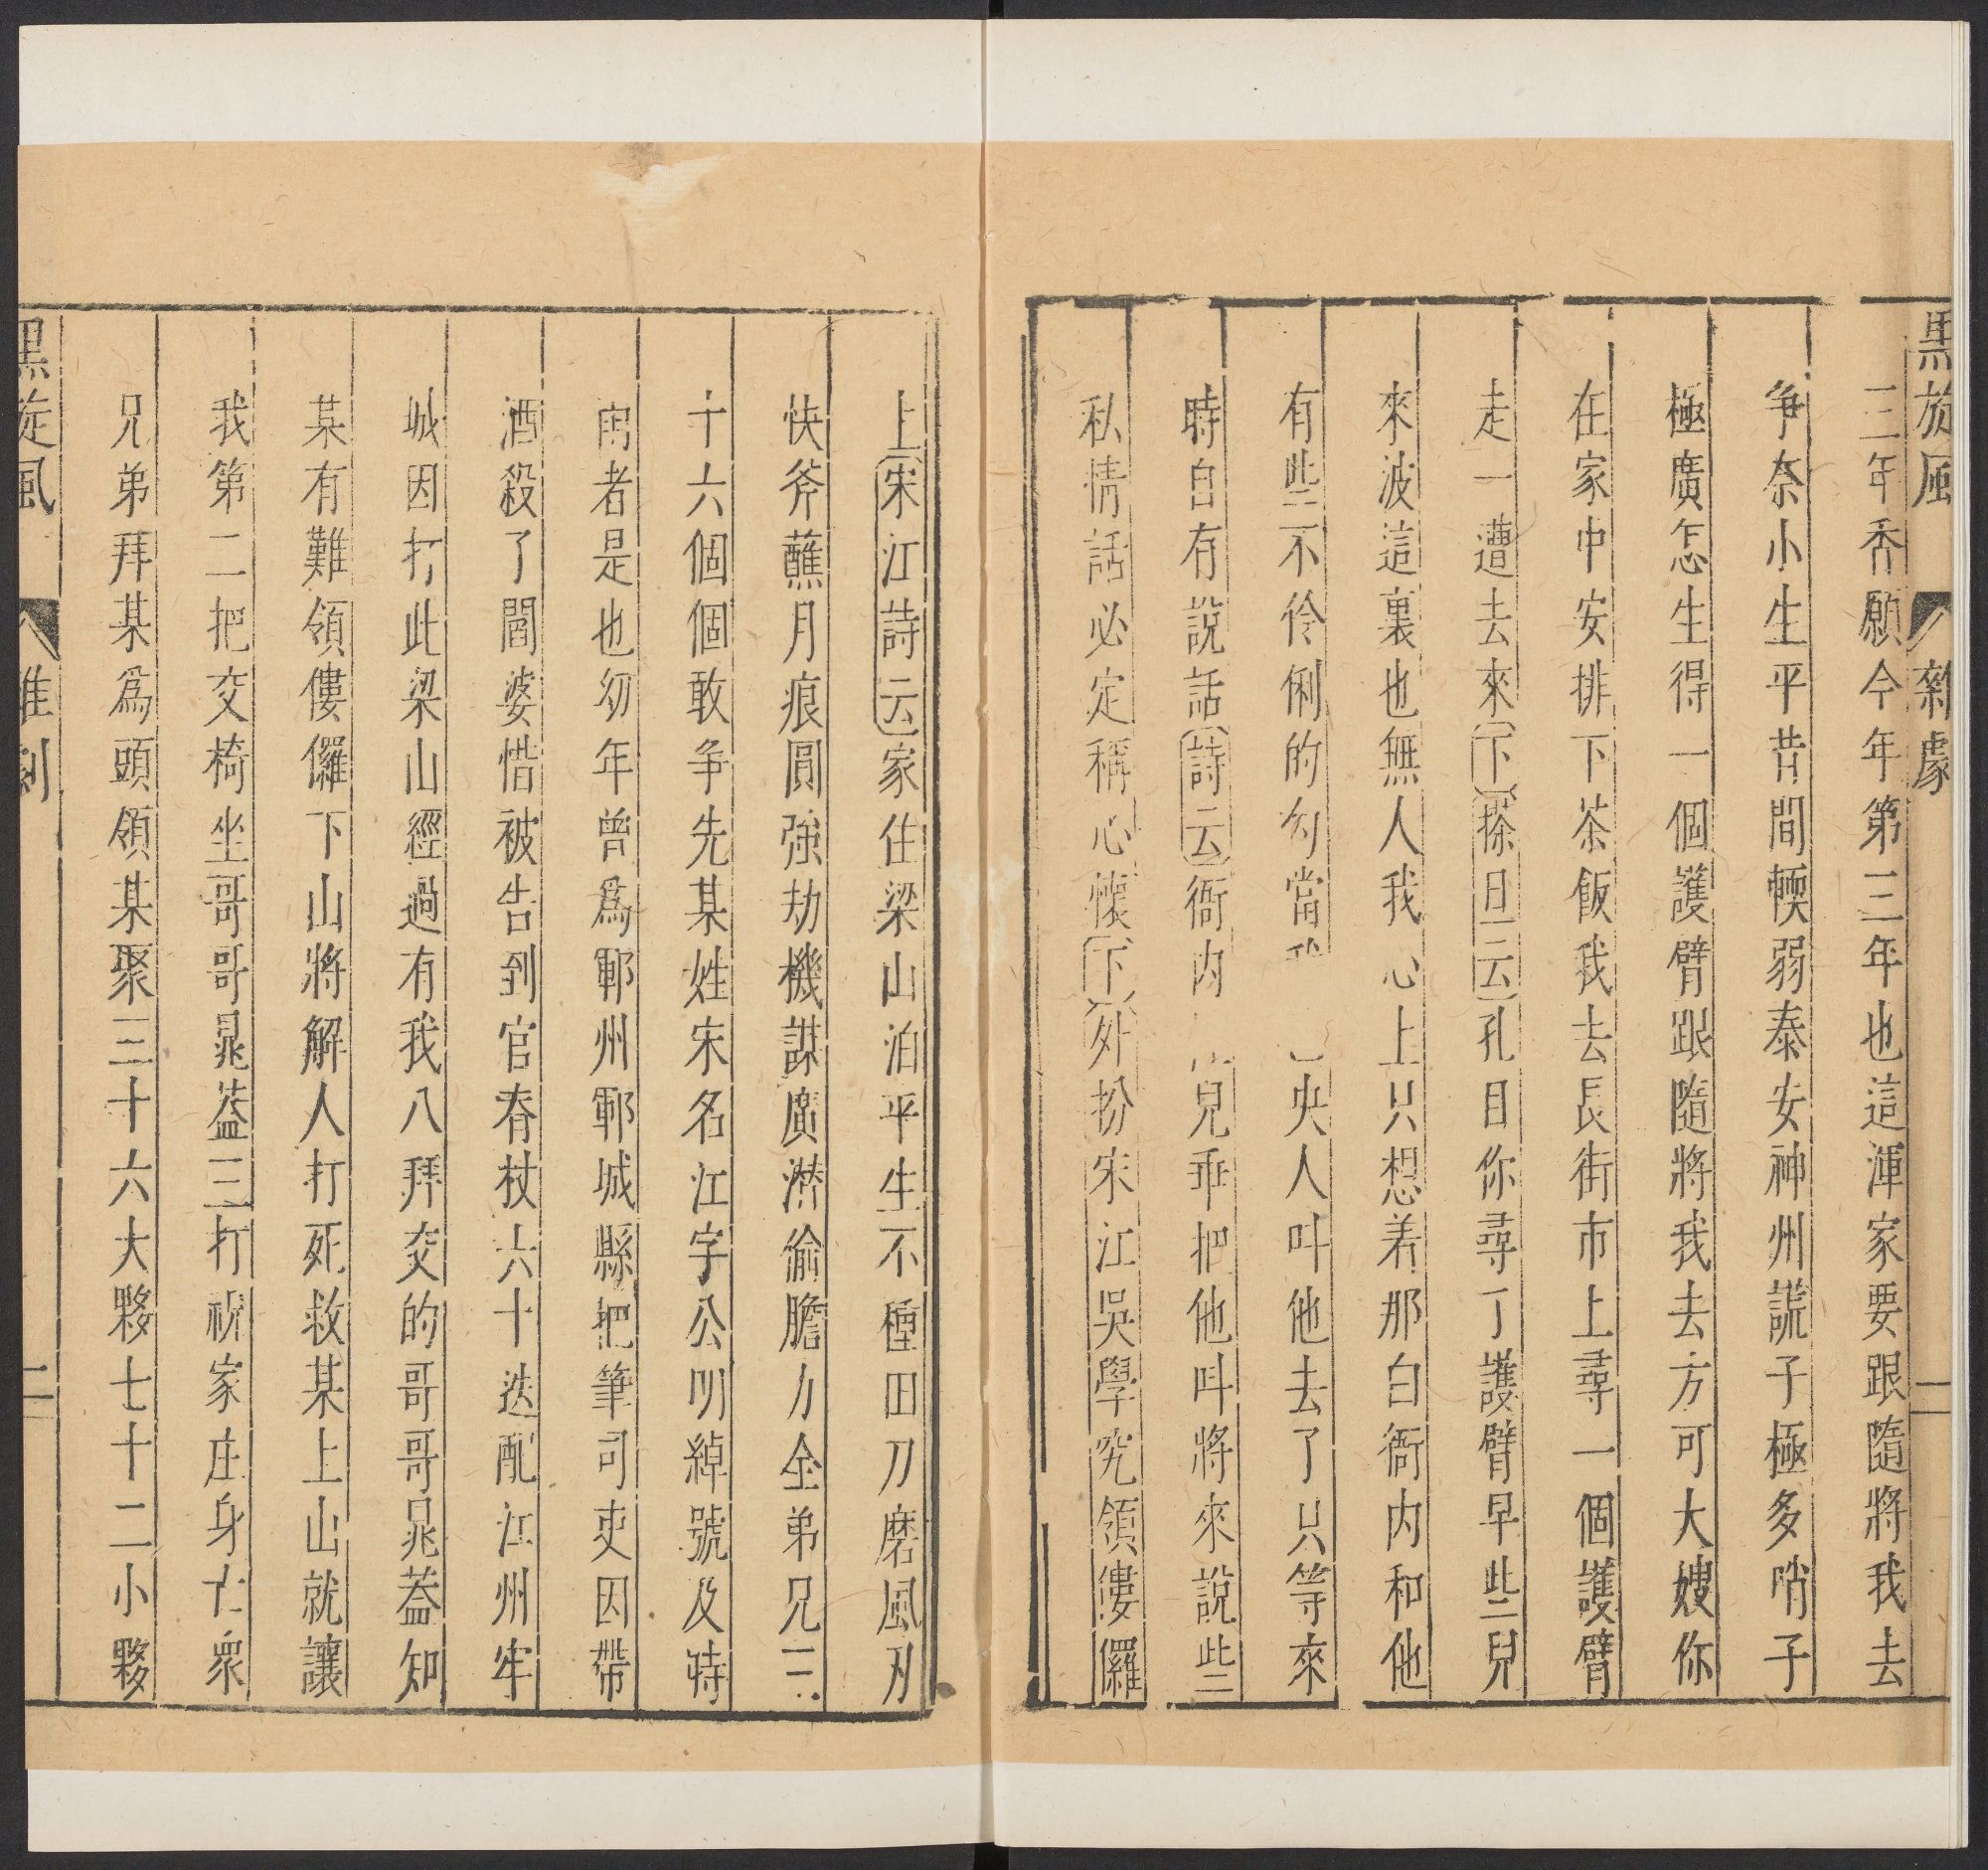 黑旋風 雜劇 一
三年香願今年第三年也這渾家要跟隨將我去
爭奈小生平昔間輭弱泰安神州謊子極多哨子
極廣怎生得一個護臂跟隨將我去方可大嫂你
在家中安排下茶飯我去長街市上尋一個護臂
走一遭去來下搽旦云孔目你尋了護臂早些兒
來波這裏也無人我心上只想着那白衙內和他
有些不伶俐的勾當我 央人叫他去了只等來
時自有說話詩云衙內 兒乖把他叫將來說些
私情話必定稱心懷下外扮宋江吳學究領僂儸
上宋江詩云家住梁山泊平生不種田刀磨風刃
快斧蘸月痕圓強劫機謀廣潛偷膽力全弟兄三
十六個個敢爭先某姓宋名江字公明綽號及時
雨者是也幼年曾爲鄆州鄆城縣把筆司吏因帶
酒殺了閻婆惜被告到官脊杖六十迭配江州牢
城因打此梁山經過有我八拜交的哥哥晁蓋知
某有難領僂儸下山將解人打死救某上山就讓
我第二把交椅坐哥哥晁蓋三打祝家庄身亡衆
兄弟拜某爲頭領某聚三十六大夥七十二小夥
黑旋風 雜劇 二